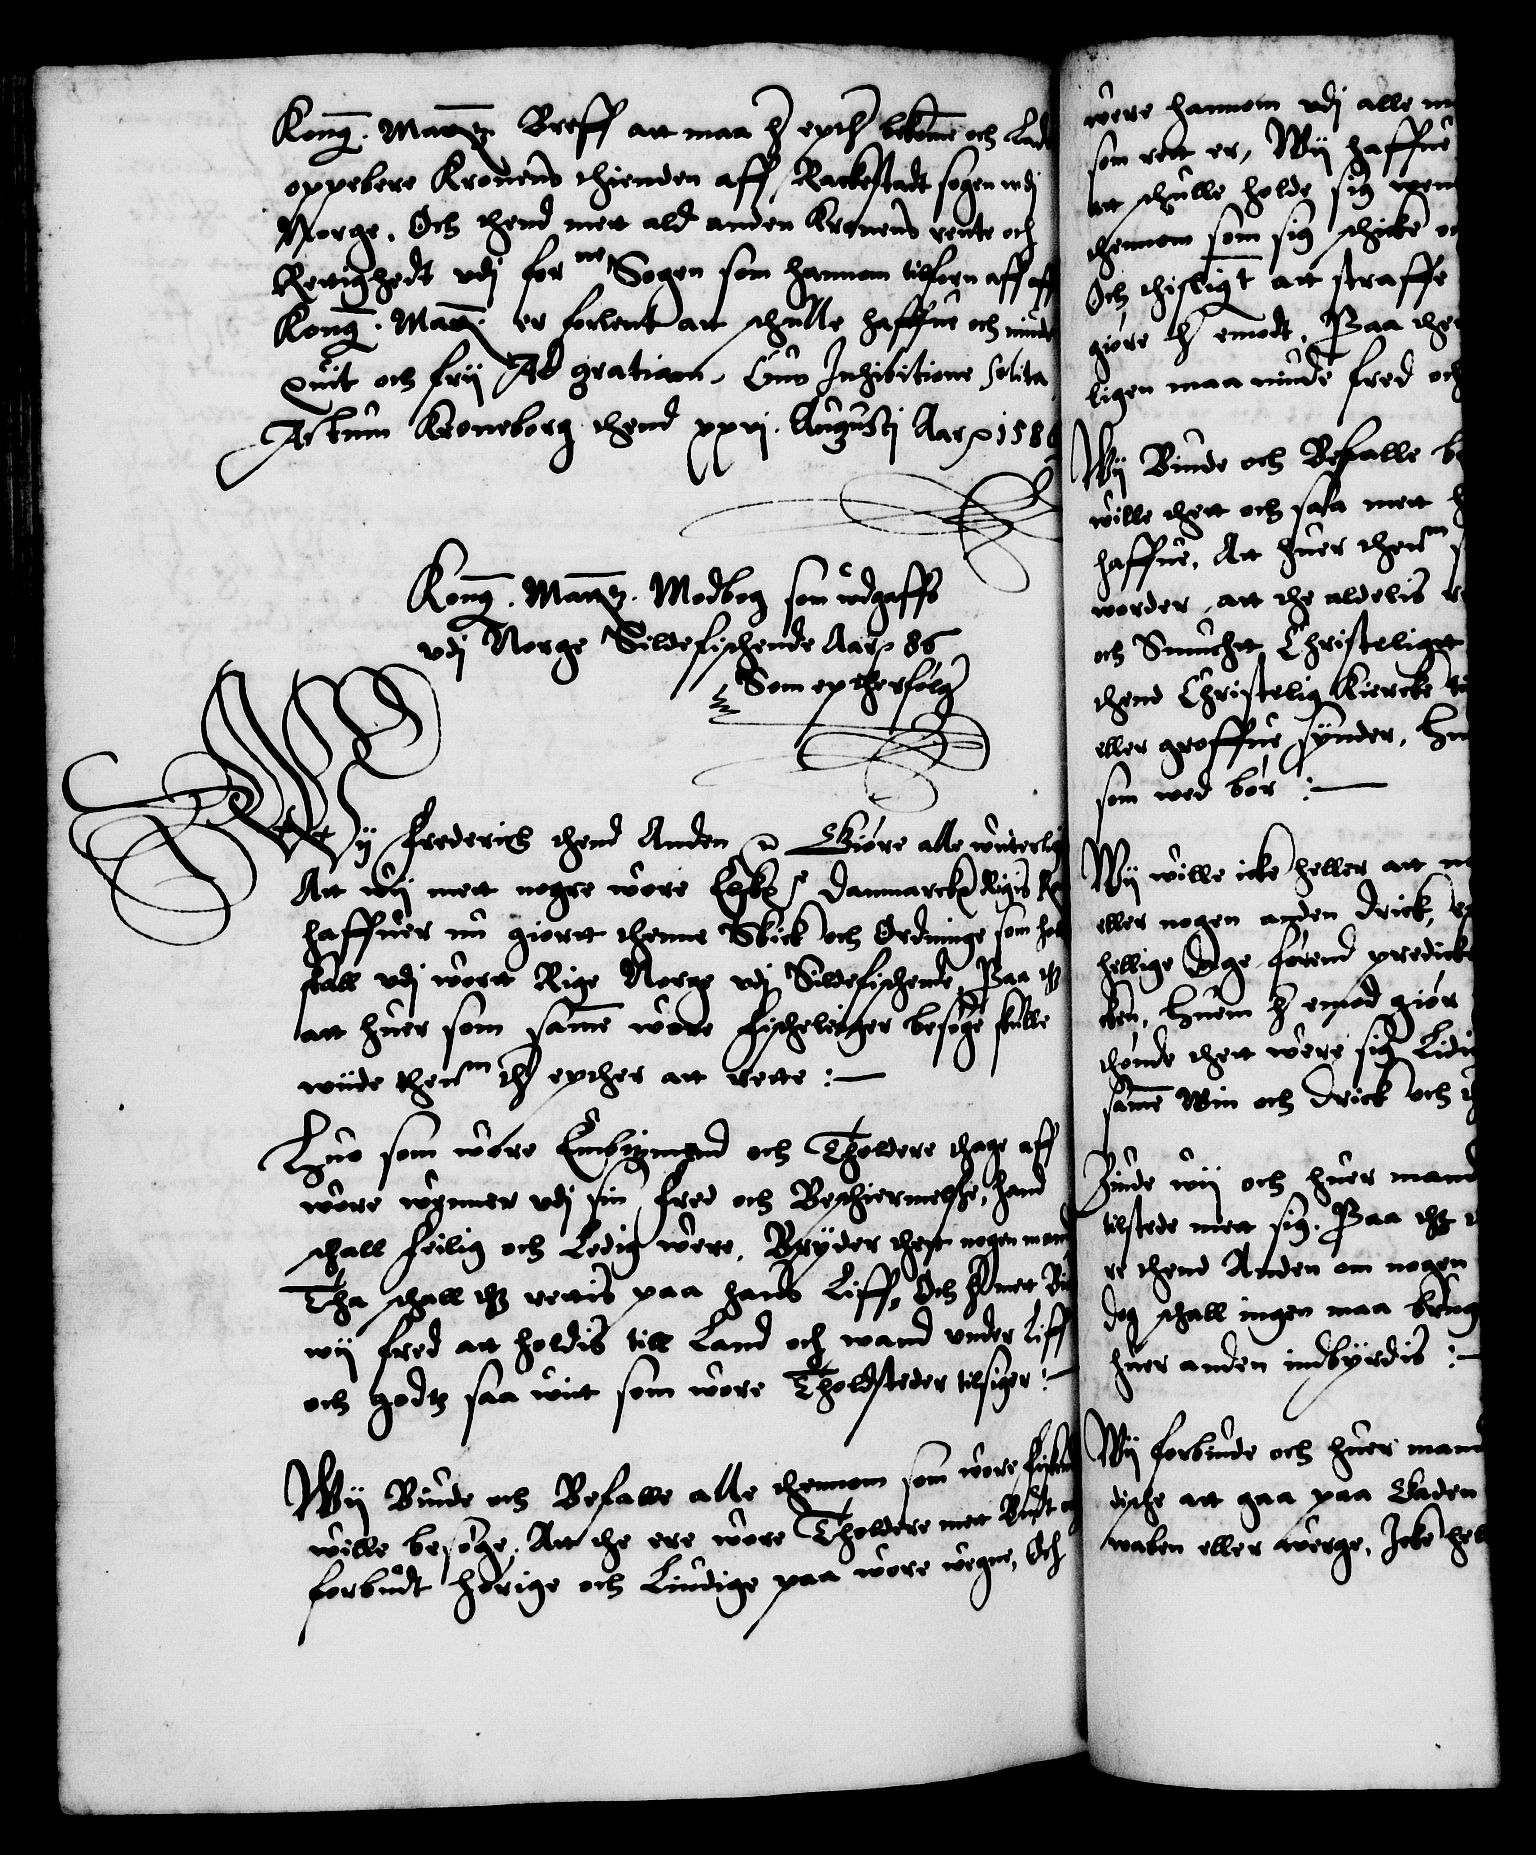 Kong. Maytz Breff att maa hr epther bekome och Lade
oppebere Kronens thienden aff Rackestadt sogen vdj
Norge. Och thend mett ald anden Kronens rente och
Retighedt vdj forne Sogen som hannom tilforn aff
Kong. Maytt er forlent att schulle haffue och niude
quit och frij Ad gratiam. Cum Inhibitione solita
Actum Kroneborg thend xxvj Augustj Aar 1586

Kong. Maytz. Modbog som udgaffs
vdj Norge Sildefischende Aar 86
Som eptherfølg

Wij Frederich thend Anden Giøre alle witterligt
Att wij mett nogre wore Elske Danmarckes Rigis
haffuer nu giortt thenne Skick och Ordninge som
skall vdj wortt Rige Norge vdj Sildefischende, Paa thz
att huer som samme wore Fischeleigger besøge skulle
wiide thennom ther epther att rette :—

Huo som wore Embitzmend och Tholdere thage aff
wore wegner vdj sin fred och Beschiermelsse, hand
schall feilig och Ledig were. Bryder thett nogen mand
Tha schall thz rettis paa hans Liff, Och her mett Biude
wij fred att holdis till Land och wand under Liff
och godtz saa witt som wore Tholdsteder tilsiger :—

Wij Biude och Befalle alle thennom som wore
wille besøge, Att the ere wore Tholdere mett Budt
forbudt hørige och Liudige paa wore wegne, Och

were hannom vdj alle
som rett er, Wij haffue
att schulle holde sig
thennom som sig schicke
Och thisligt att straffe
giøre her emodt, Paa
ligen maa niude fred och

Wij Biude och Befalle
wille thett och saa mett
haffue, Att huer thennom
worder att the aldelis
och Smucht Christeligtt
thend Christelig Kiercke
eller groffue synder,
som wed bør :—

Wij wille icke heller att
eller nogen anden drick,
hellige dage førend predicken
Huem her emod giør
thønde thett were sig
samme Win och drick och

Biude wij och huer mand
tilstede mett sig. Paa thz
re thend Anden om nogen
dog schall ingen maa
huer anden indbyrdis :—

Wij forbiude och huer mand
dische att gaa paa Gaden
waben eller werge, Icke